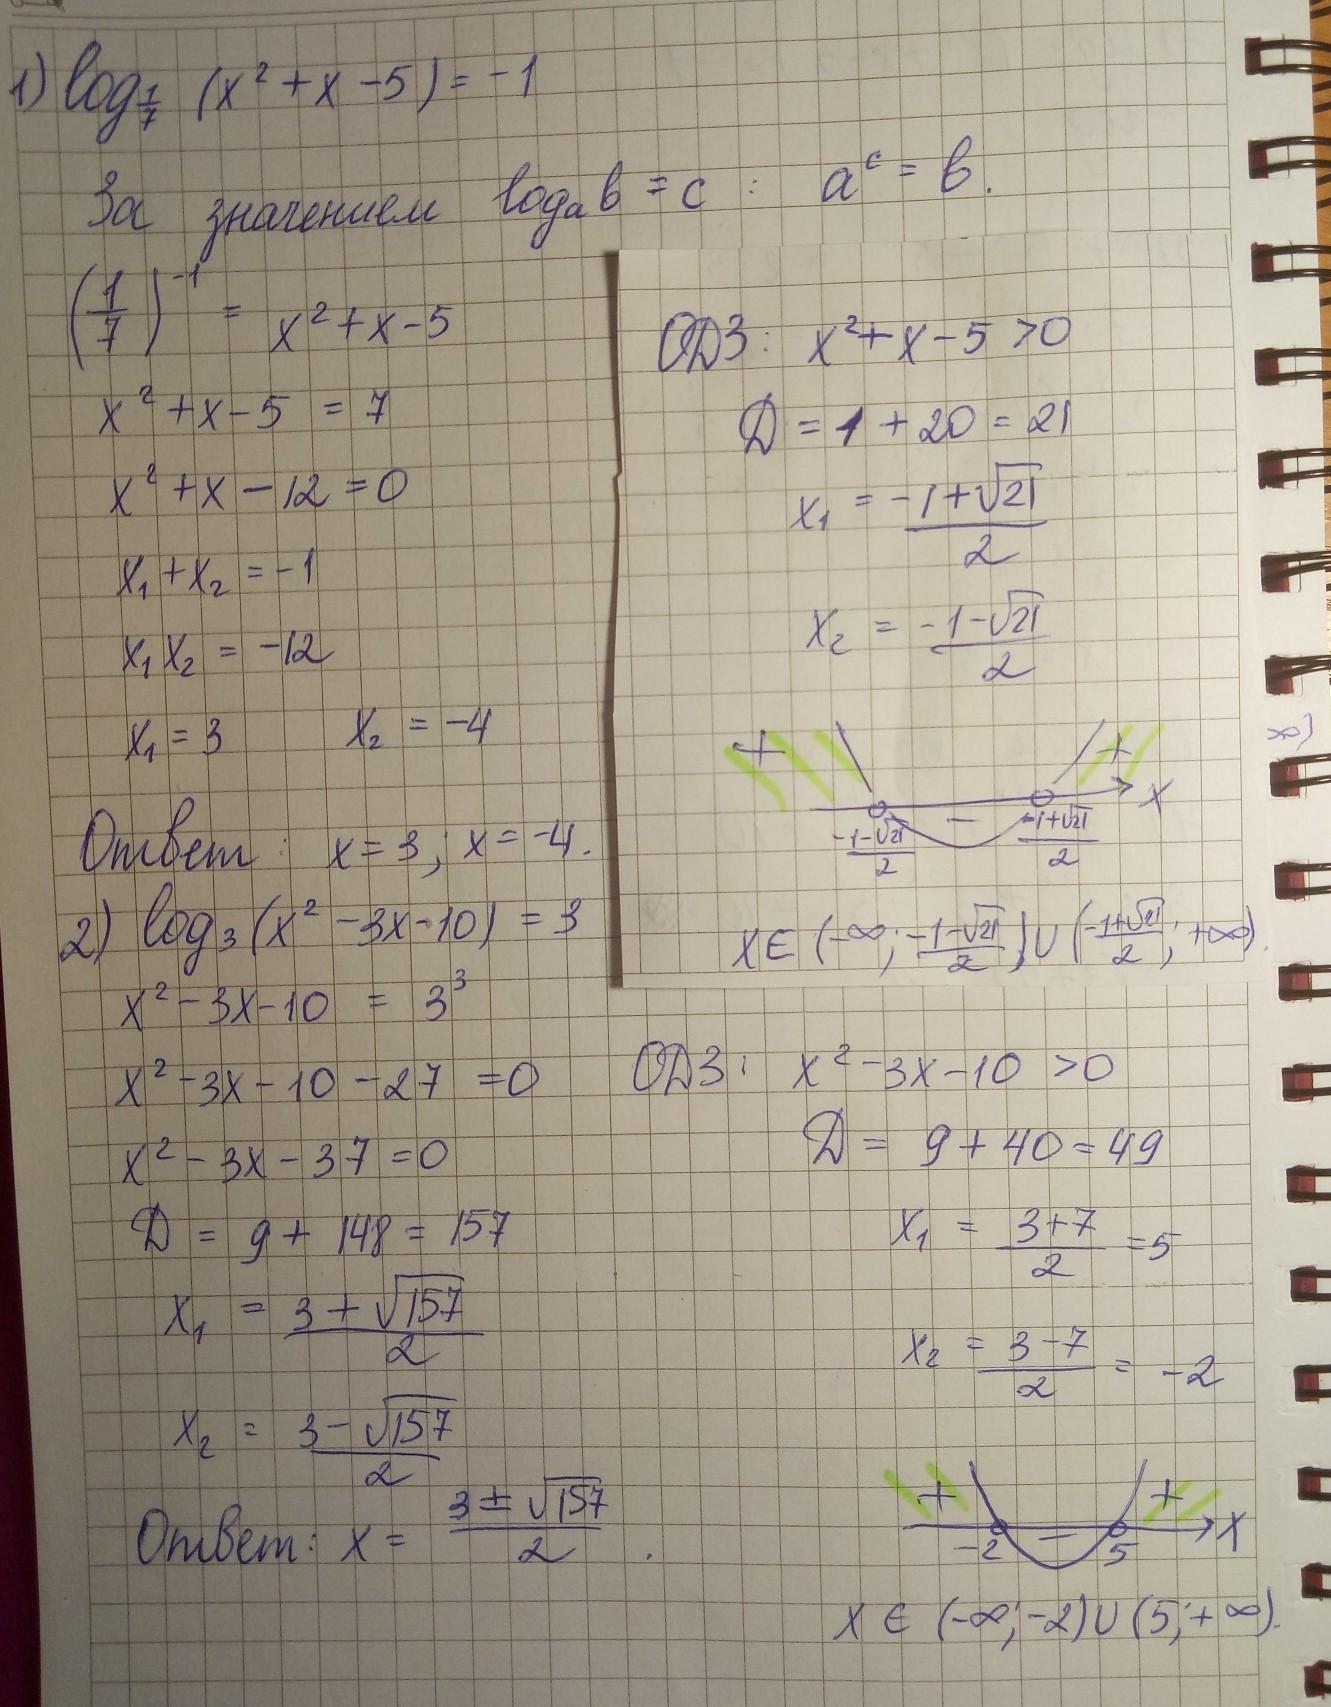 1) log_{1/7} (x² + x - 5) = -1
За значением log_a b = c : a^c = b.
(1/7)^{-1} = x² + x - 5
x² + x - 5 = 7
x² + x - 12 = 0
x₁ + x₂ = -1
x₁ x₂ = -12
x₁ = 3 x₂ = -4
Ответ: x = 3; x = -4.
ОДЗ: x² + x - 5 > 0
Д = 1 + 20 = 21
x₁ = (-1 + √21)/2
x₂ = (-1 - √21)/2
+ - + x
(-1-√21)/2 (-1+√21)/2
x ∈ (-∞; (-1-√21)/2) ∪ ((-1+√21)/2; +∞).
∞)
2) log₃ (x² - 3x - 10) = 3
x² - 3x - 10 = 3³
x² - 3x - 10 - 27 = 0
x² - 3x - 37 = 0
Д = 9 + 148 = 157
x₁ = (3 + √157)/2
x₂ = (3 - √157)/2
Ответ: x = (3 ± √157)/2.
ОДЗ: x² - 3x - 10 > 0
Д = 9 + 40 = 49
x₁ = (3+7)/2 = 5
x₂ = (3-7)/2 = -2
+ - + x
-2 5
x ∈ (-∞; -2) ∪ (5; +∞).